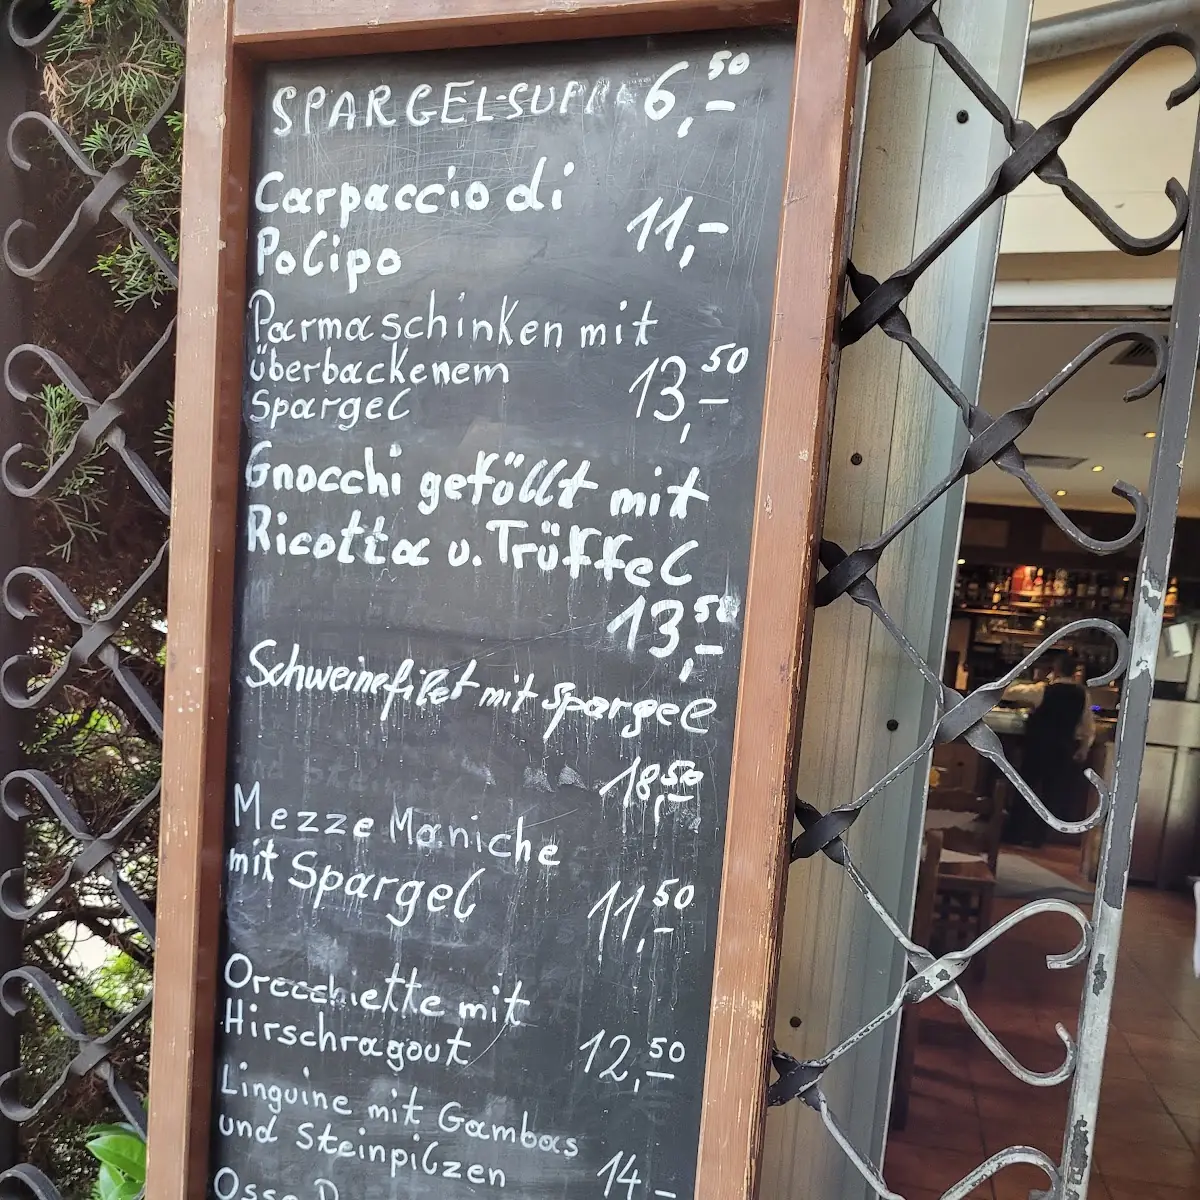 SPARGEL-SUPPE 6,50
Carpaccio di
Polipo 11,-
Parmaschinken mit
überbackenem
Spargel 13,50
Gnocchi geföllt mit
Ricotta u. Trüffel
13,50
Schweinefilet mit Spargel
18,50
Mezze Maniche
mit Spargel 11,50
Orecchiette mit
Hirschragout 12,50
Linguine mit Gambas
und Steinpilzen 14,-
Osso